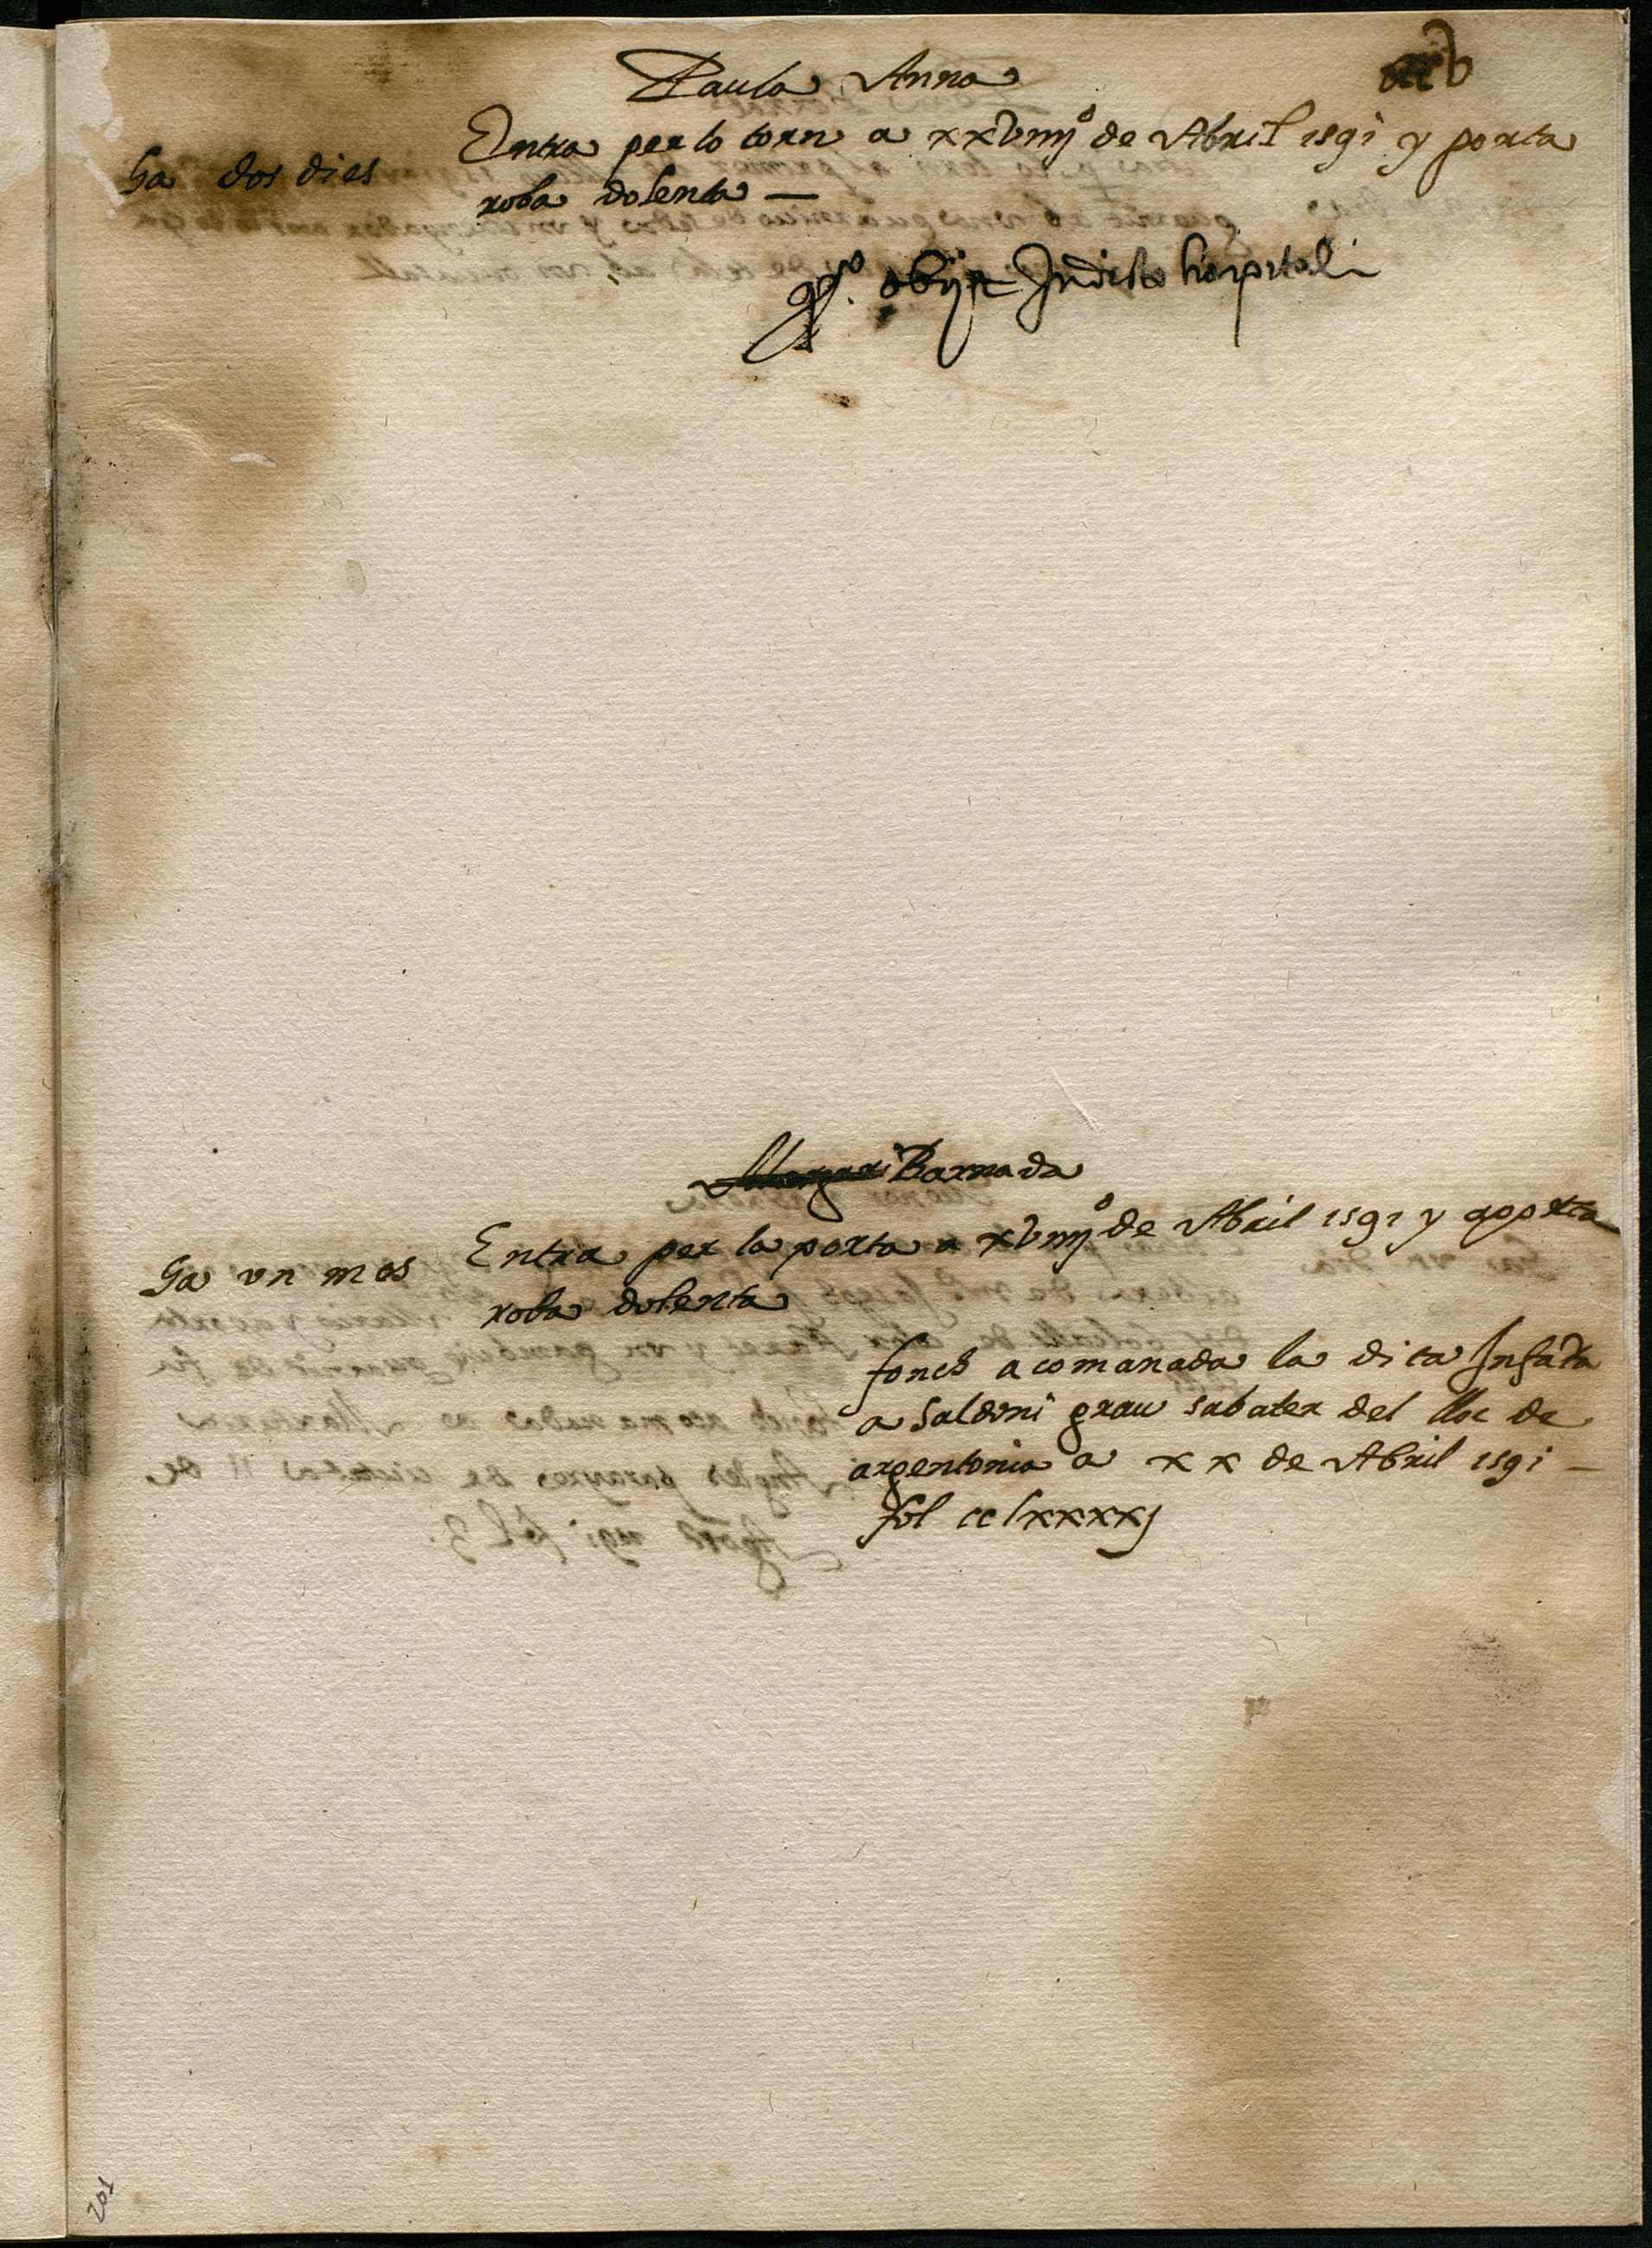 Paula Anna
Entra per lo torn a xxviiijº de Abril 1591 y porta
ha dos dies
roba dolenta —
obijt In dicto hospitali
Margari Barnada
Entra per la porta a xviiijº de Abril 1591 y aporta
ha un mes
roba dolenta
fonch acomanada la dita Infāta
a Saldoni grau sabater del lloc de
argentonia a xx de Abril 1591 —
fol cclxxxxj
201